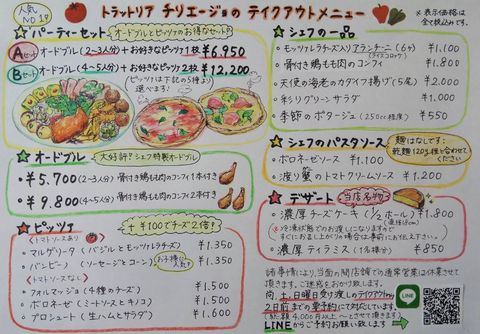 人気NO.1!!
トラットリア チリエージョの テイクアウトメニュー
※表示価格は全て税込みです。
パーティーセット
オードブルとピッツァのお得なセット♪
Aセット オードブル(2〜3人分)+お好きなピッツァ1枚 ¥6,950
Bセット オードブル(4〜5人分)+お好きなピッツァ2枚 ¥12,200
(ピッツァは下記の5種より選べます)
オードブル
大好評!!シェフ特製オードブル
¥5.700(2〜3人分) 骨付き鶏もも肉のコンフィ1本付き
¥9.800(4〜5人分) 骨付き鶏もも肉のコンフィ2本付き
ピッツァ
+¥100でチーズ2倍!
<トマトソースあり>
・マルゲリータ(バジルとモッツァレラチーズ) ¥1.350
・バンビーノ(ソーセージとコーン) ¥1.350
お子様に人気!!
<トマトソースなし>
・フォルマッジョ(4種のチーズ) ¥1.500
・ボロネーゼ(ミートソースとキノコ) ¥1.500
・プロシュート(生ハムとサラダ) ¥1.600
シェフの一品
・モッツァレラチーズ入りアランチーニ(6ケ) ¥1.100
(ライスコロッケ)
・骨付き鶏もも肉のコンフィ ¥1.800
・天使の海老のカダイフ揚げ(5尾) ¥2.000
・彩りグリーンサラダ ¥1.000
・季節のポタージュ(250cc程度) ¥550
シェフのパスタソース
麺はなしです!
乾麺120gを合わせてください
・ボロネーゼソース ¥1.100
・渡り蟹のトマトクリームソース ¥1.200
デザート
当店名物
・濃厚チーズケーキ(1/2ホール) ¥1.800
(直径18cm)
※冷凍状態でのお渡しになりますので
すぐにお召し上がりの場合は事前にお伝え下さい。
・濃厚ティラミス(1名様分) ¥850
諸事情により、当面の間店舗での通常営業は休業させて
頂きます。ご迷惑をおかけ致します。
尚、土、日曜日受け渡しのテイクアウトのみ
2日前までの要予約にて対応しています
(お会計4,000円以上〜とさせて頂きます)
LINEからご予約お願い致します
LINE